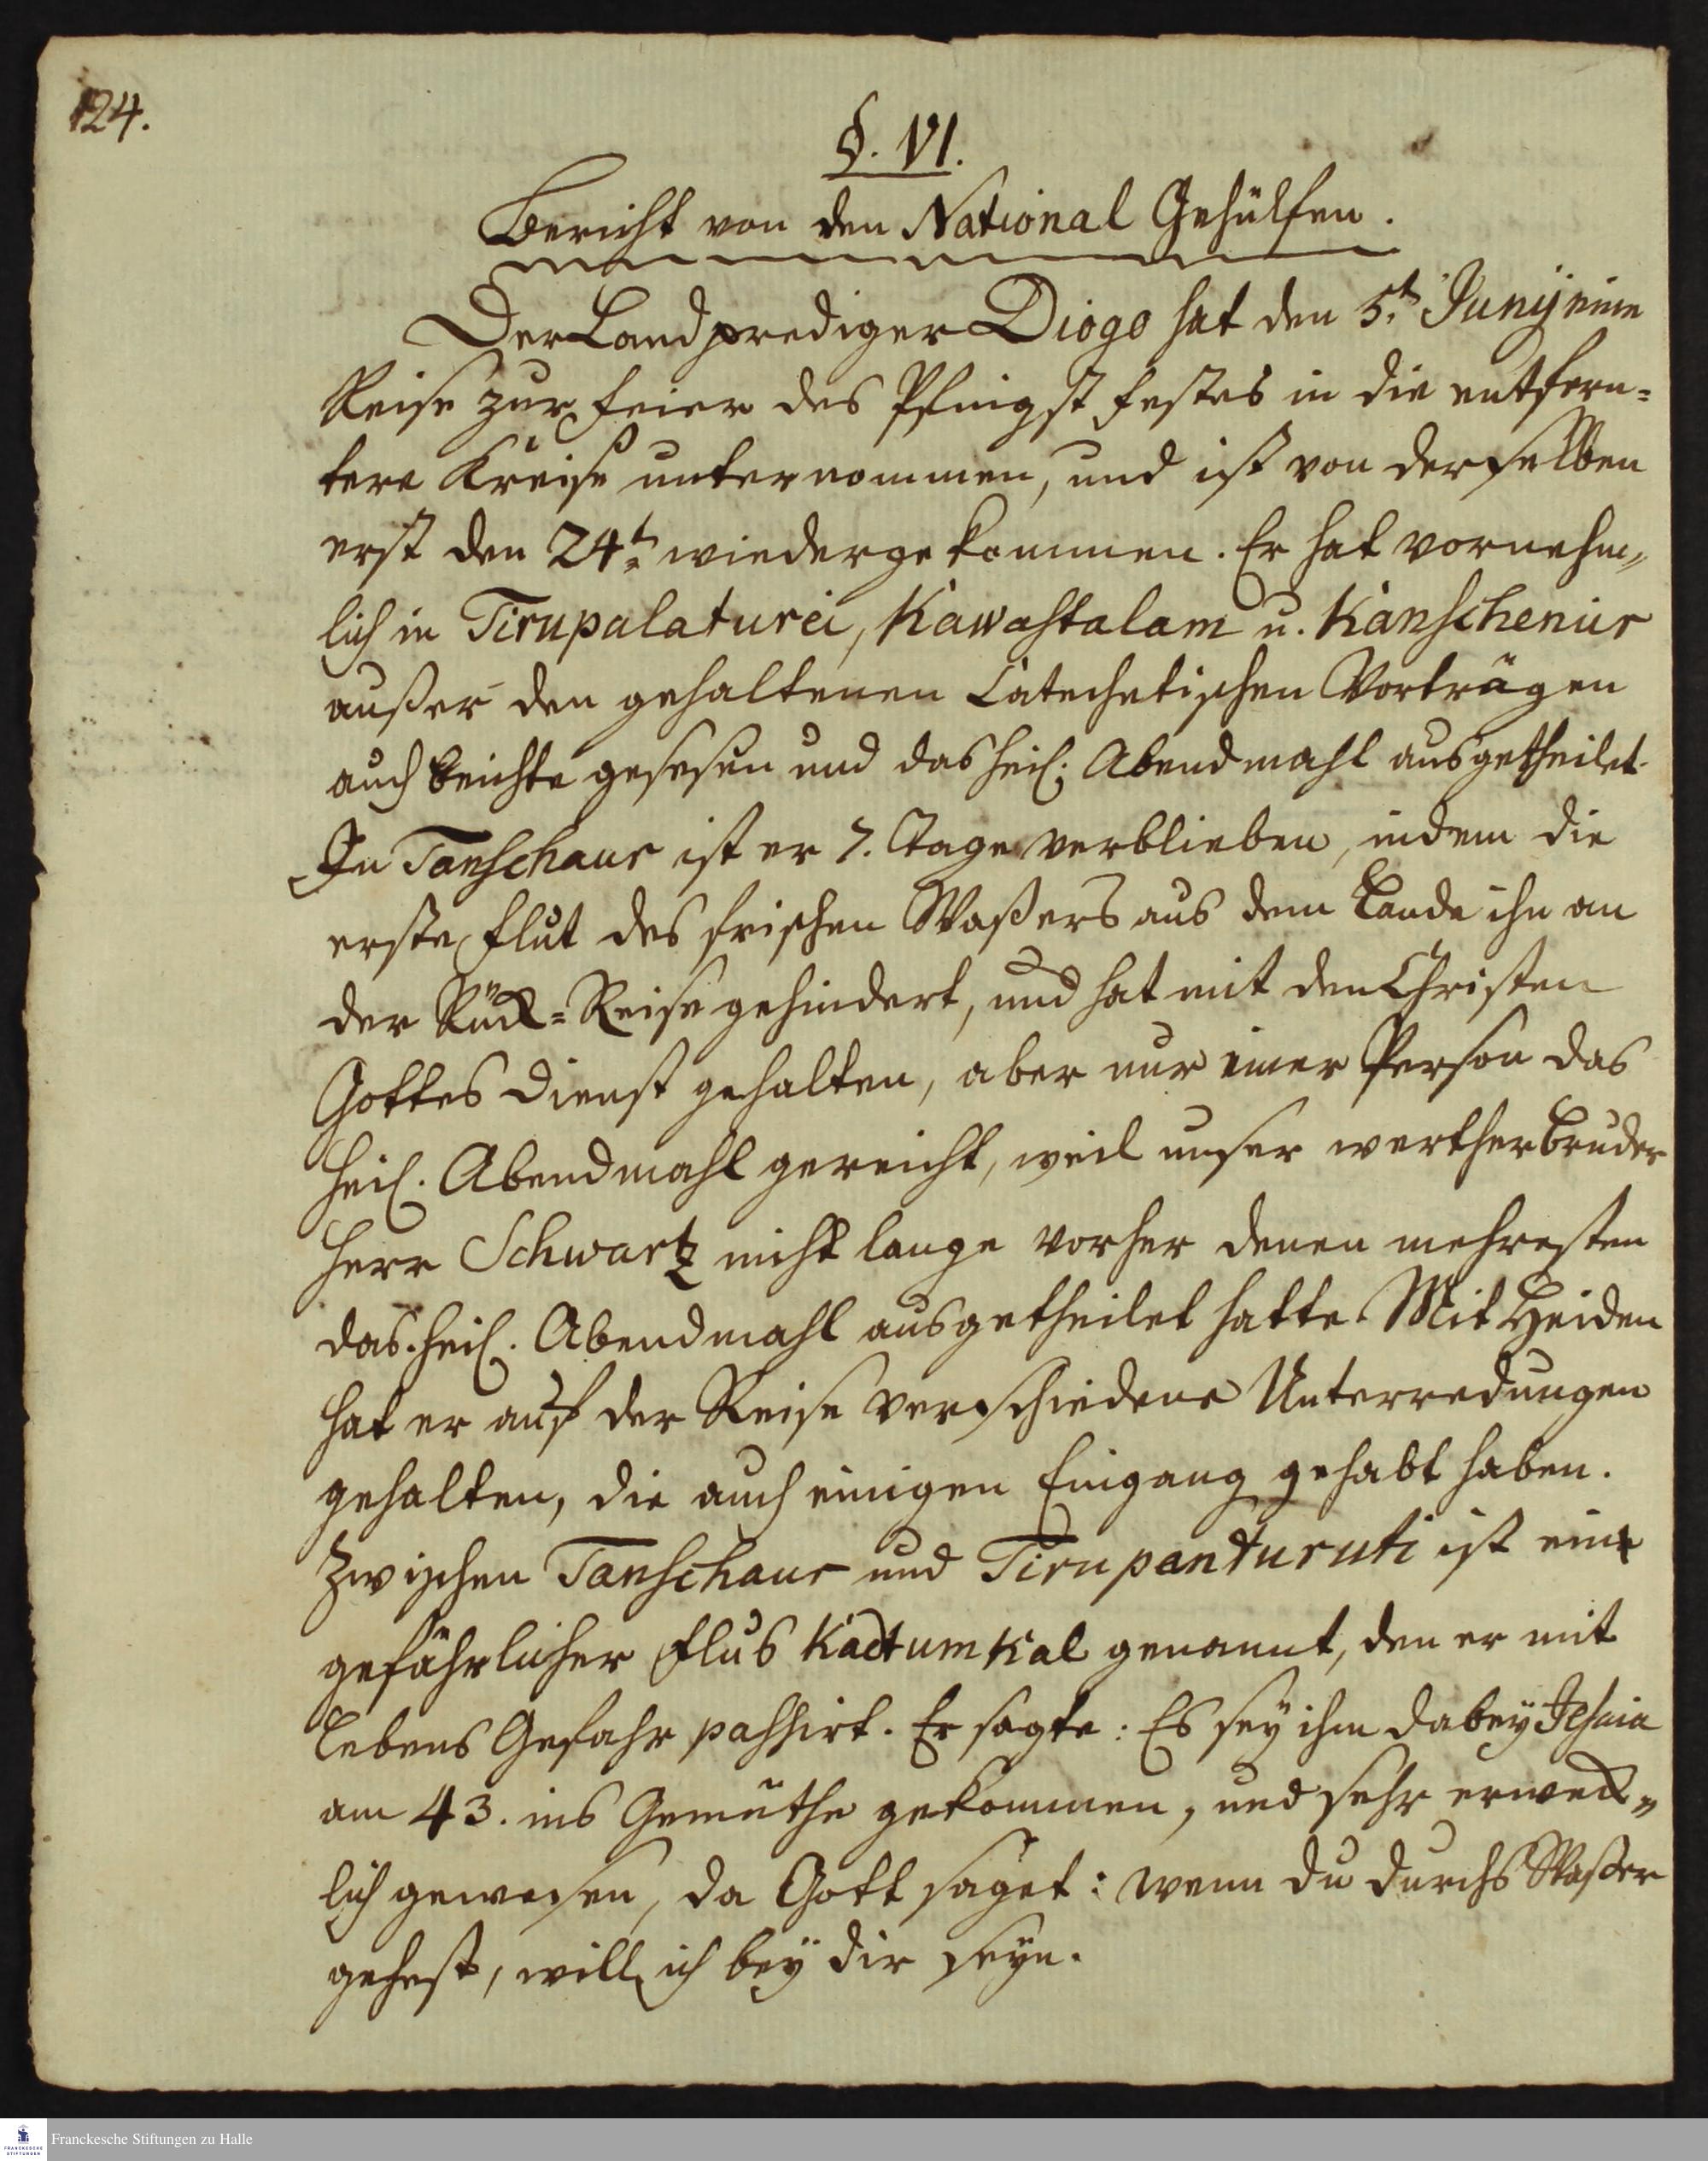 124.
§. VI.
Bericht von den National Gehülfen.
Der Landprediger Diogo hat den 5.t. Junij eine
Reise zur Feier des Pfingst Festes in die entfern=
tere Kreise unternommen, und ist von derselben
erst den 24.t. wiedergekommen. Er hat vornehm„
lich in Tirupalaturei, Kawastalam u. Kanschenur
außer den gehaltenen Catechetischen Vorträgen
auch Beichte gesesen und das heil. Abendmahl ausgetheilet.
In Tanschaur ist er 7. Tage verblieben, indem die
erste Flut des frischen Waßers aus dem Lande ihn an
der Rück=Reise gehindert, und hat mit den Christen
Gottes Dienst gehalten, aber nur einer Person das
heil. Abendmahl gereicht, weil unser werther Bruder
Herr Schwartz nicht lange vorher denen mehresten
das heil. Abendmahl ausgetheilet hatte. Mit Heiden
hat er auf der Reise verschiedene Unterredungen
gehalten, die auch einigen Eingang gehabt haben.
Zwischen Tanschaur und Tirupanturuti ist ein
gefährlicher Flus Kadtumkal genannt, den er mit
Lebens Gefahr passirt. Er sagte: Es sey ihm dabey Jesaia
am 43. ins Gemüthe gekommen, und sehr erweck„
lich gewesen, da Gott saget: wenn du durchs Waßer
gehest, will ich bey dir seyn.
Franckesche Stiftungen zu Halle
FRANCKESCHE
STIFTUNGEN